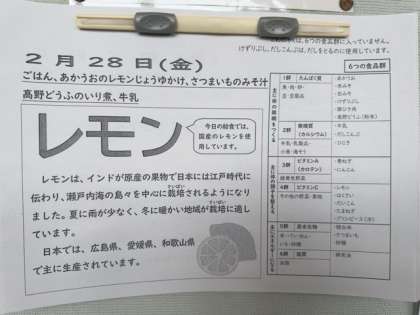 ２月２８日(金)
ごはん、あかうおのレモンじょうゆかけ、さつまいものみそ汁
高野どうふのいり煮、牛乳
は、６つの食品群に入っていません。
けずりぶし、だしこんぶは、だしをとるのに使用しています。
レモン
今日の給食では、
国産のレモンを使
用しています。
レモンは、インドが原産の果物で日本には江戸時代に
伝わり、瀬戸内海の島々を中心に栽培されるようになり
ました。夏に雨が少なく、冬に暖かい地域が栽培に適し
ています。
日本では、広島県、愛媛県、和歌山県
で主に生産されています。
６つの食品群
1群 たんぱく質
・あかうお
・赤みそ
・けずりぶし
2群 無機質
(カルシウム)
・牛乳
・だしこんぶ
・ひじき
3群 ビタミンA
(カロテン)
・にんじん
4群 ビタミンC
・だいこん
・たまねぎ
5群 炭水化物
・さつまいも
・砂糖
6群 脂質